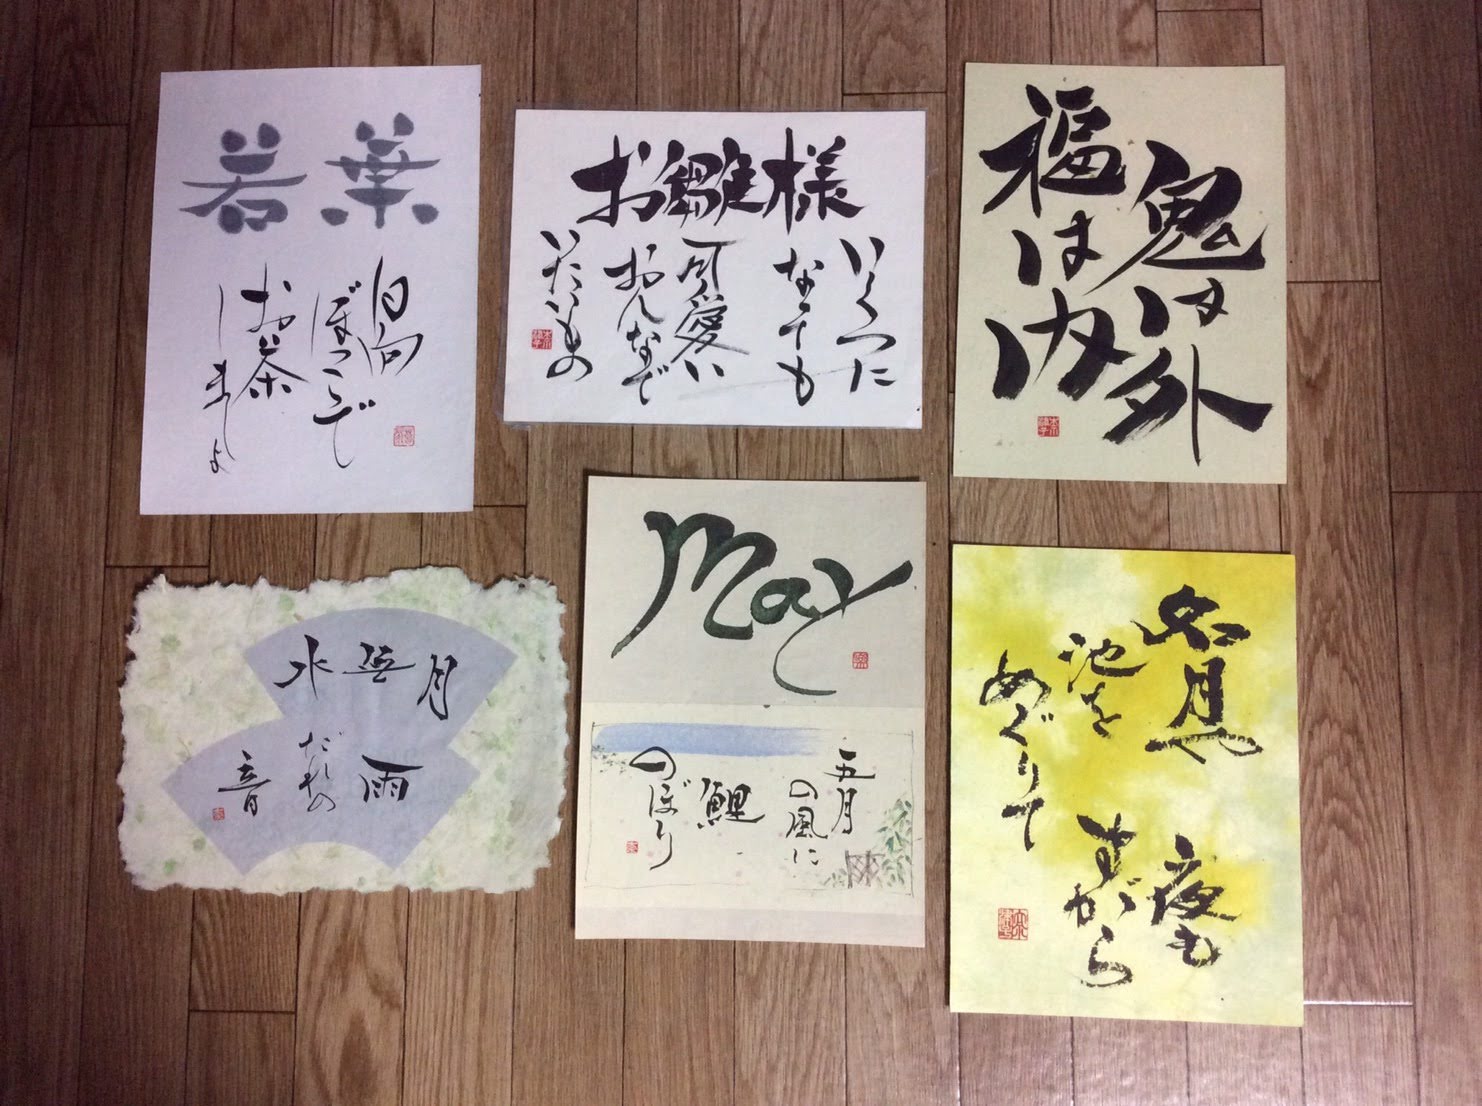 若葉
日向
ぼっこで
お茶
しましょ
お雛様
いくつに
なっても
可愛い
おんなで
いたいもの
鬼は外
福は内
水無月
雨
だれの
音
May
五月
の風に
鯉
のぼり
如月や
池を
めぐりて
夜も
すがら